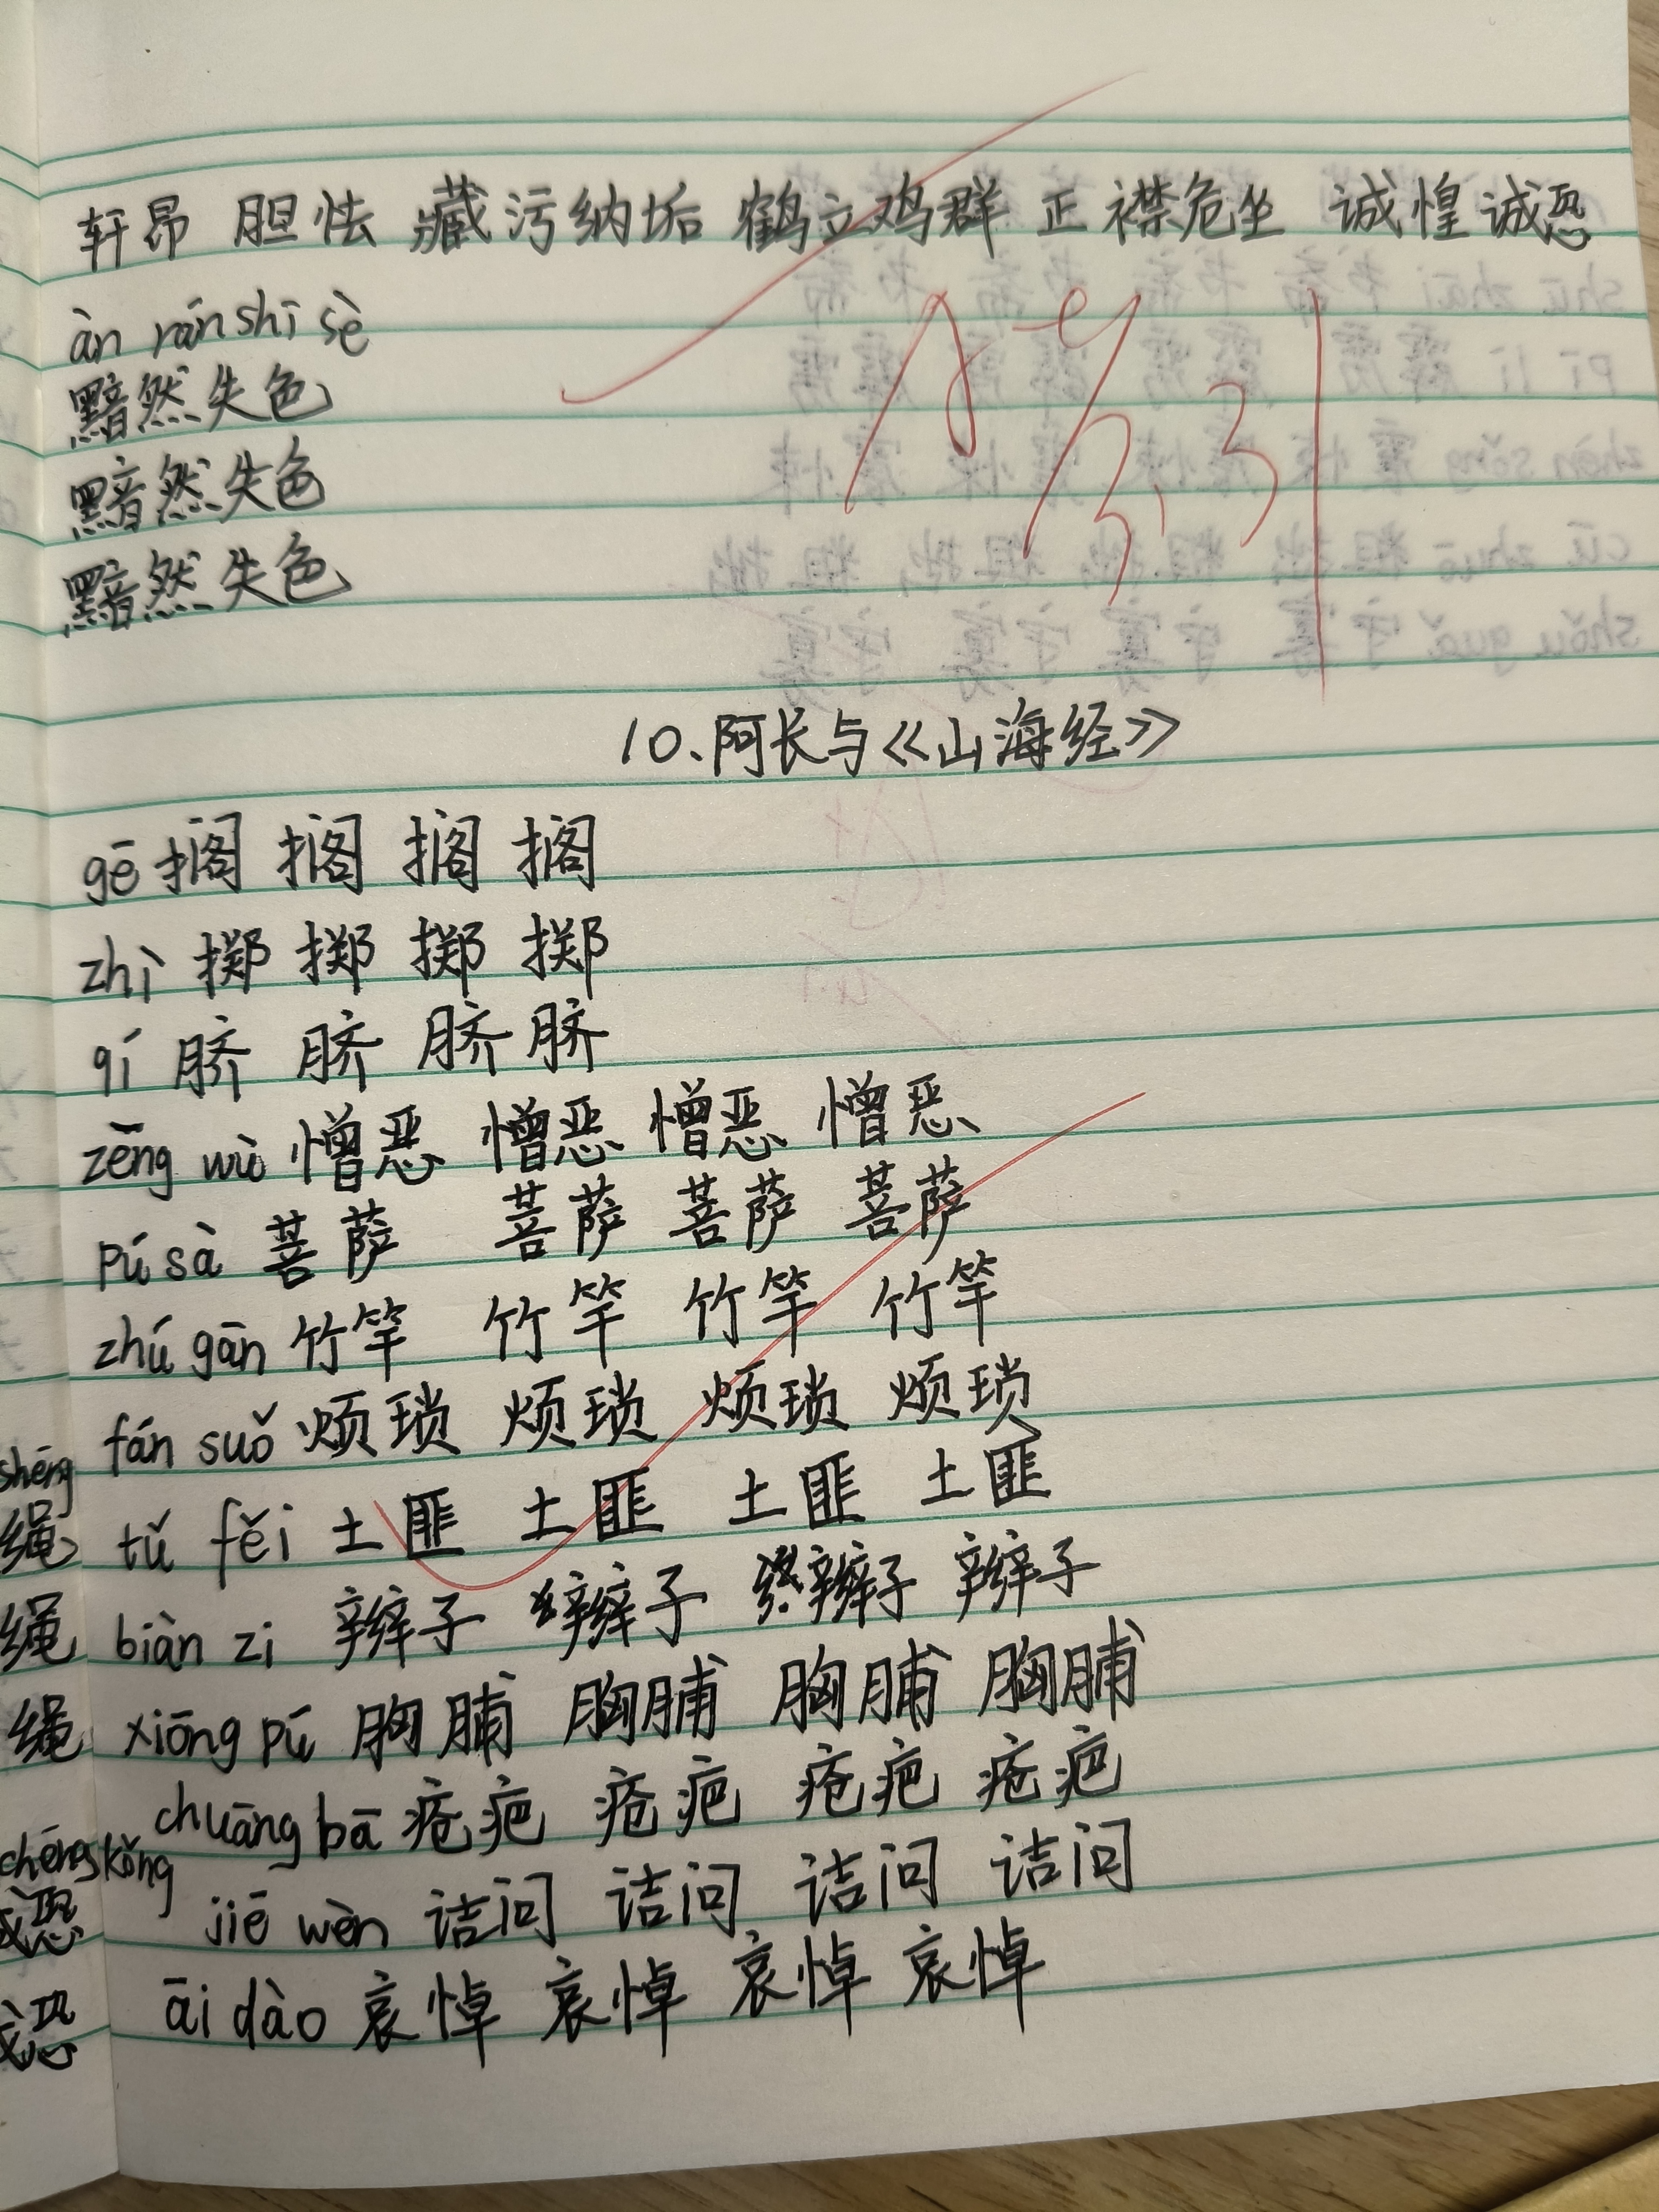 轩昂 胆怯 藏污纳垢 鹤立鸡群 正襟危坐 诚惶诚恐
àn rán shī sè
黯然失色
黯然失色
黯然失色
10.阿长与《山海经》
gē 搁 搁 搁 搁
zhì 掷 掷 掷 掷
qí 脐 脐 脐 脐
zēng wù 憎恶 憎恶 憎恶 憎恶
pú sà 菩萨 菩萨 菩萨 菩萨
zhú gān 竹竿 竹竿 竹竿 竹竿
fán suǒ 烦琐 烦琐 烦琐 烦琐
tǔ fěi 土匪 土匪 土匪 土匪
biàn zi 辫子 辫子 辫子 辫子
xiōng pú 胸脯 胸脯 胸脯 胸脯
chuāng bā 疮疤 疮疤 疮疤 疮疤
jié wèn 诘问 诘问 诘问 诘问
āi dào 哀悼 哀悼 哀悼 哀悼
shéng
绳
绳
绳
chéng kǒng
恐
恐
3.31